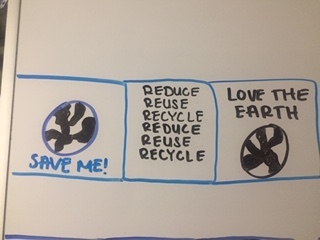 SAVE ME!
REDUCE
REUSE
RECYCLE
REDUCE
REUSE
RECYCLE
LOVE THE
EARTH